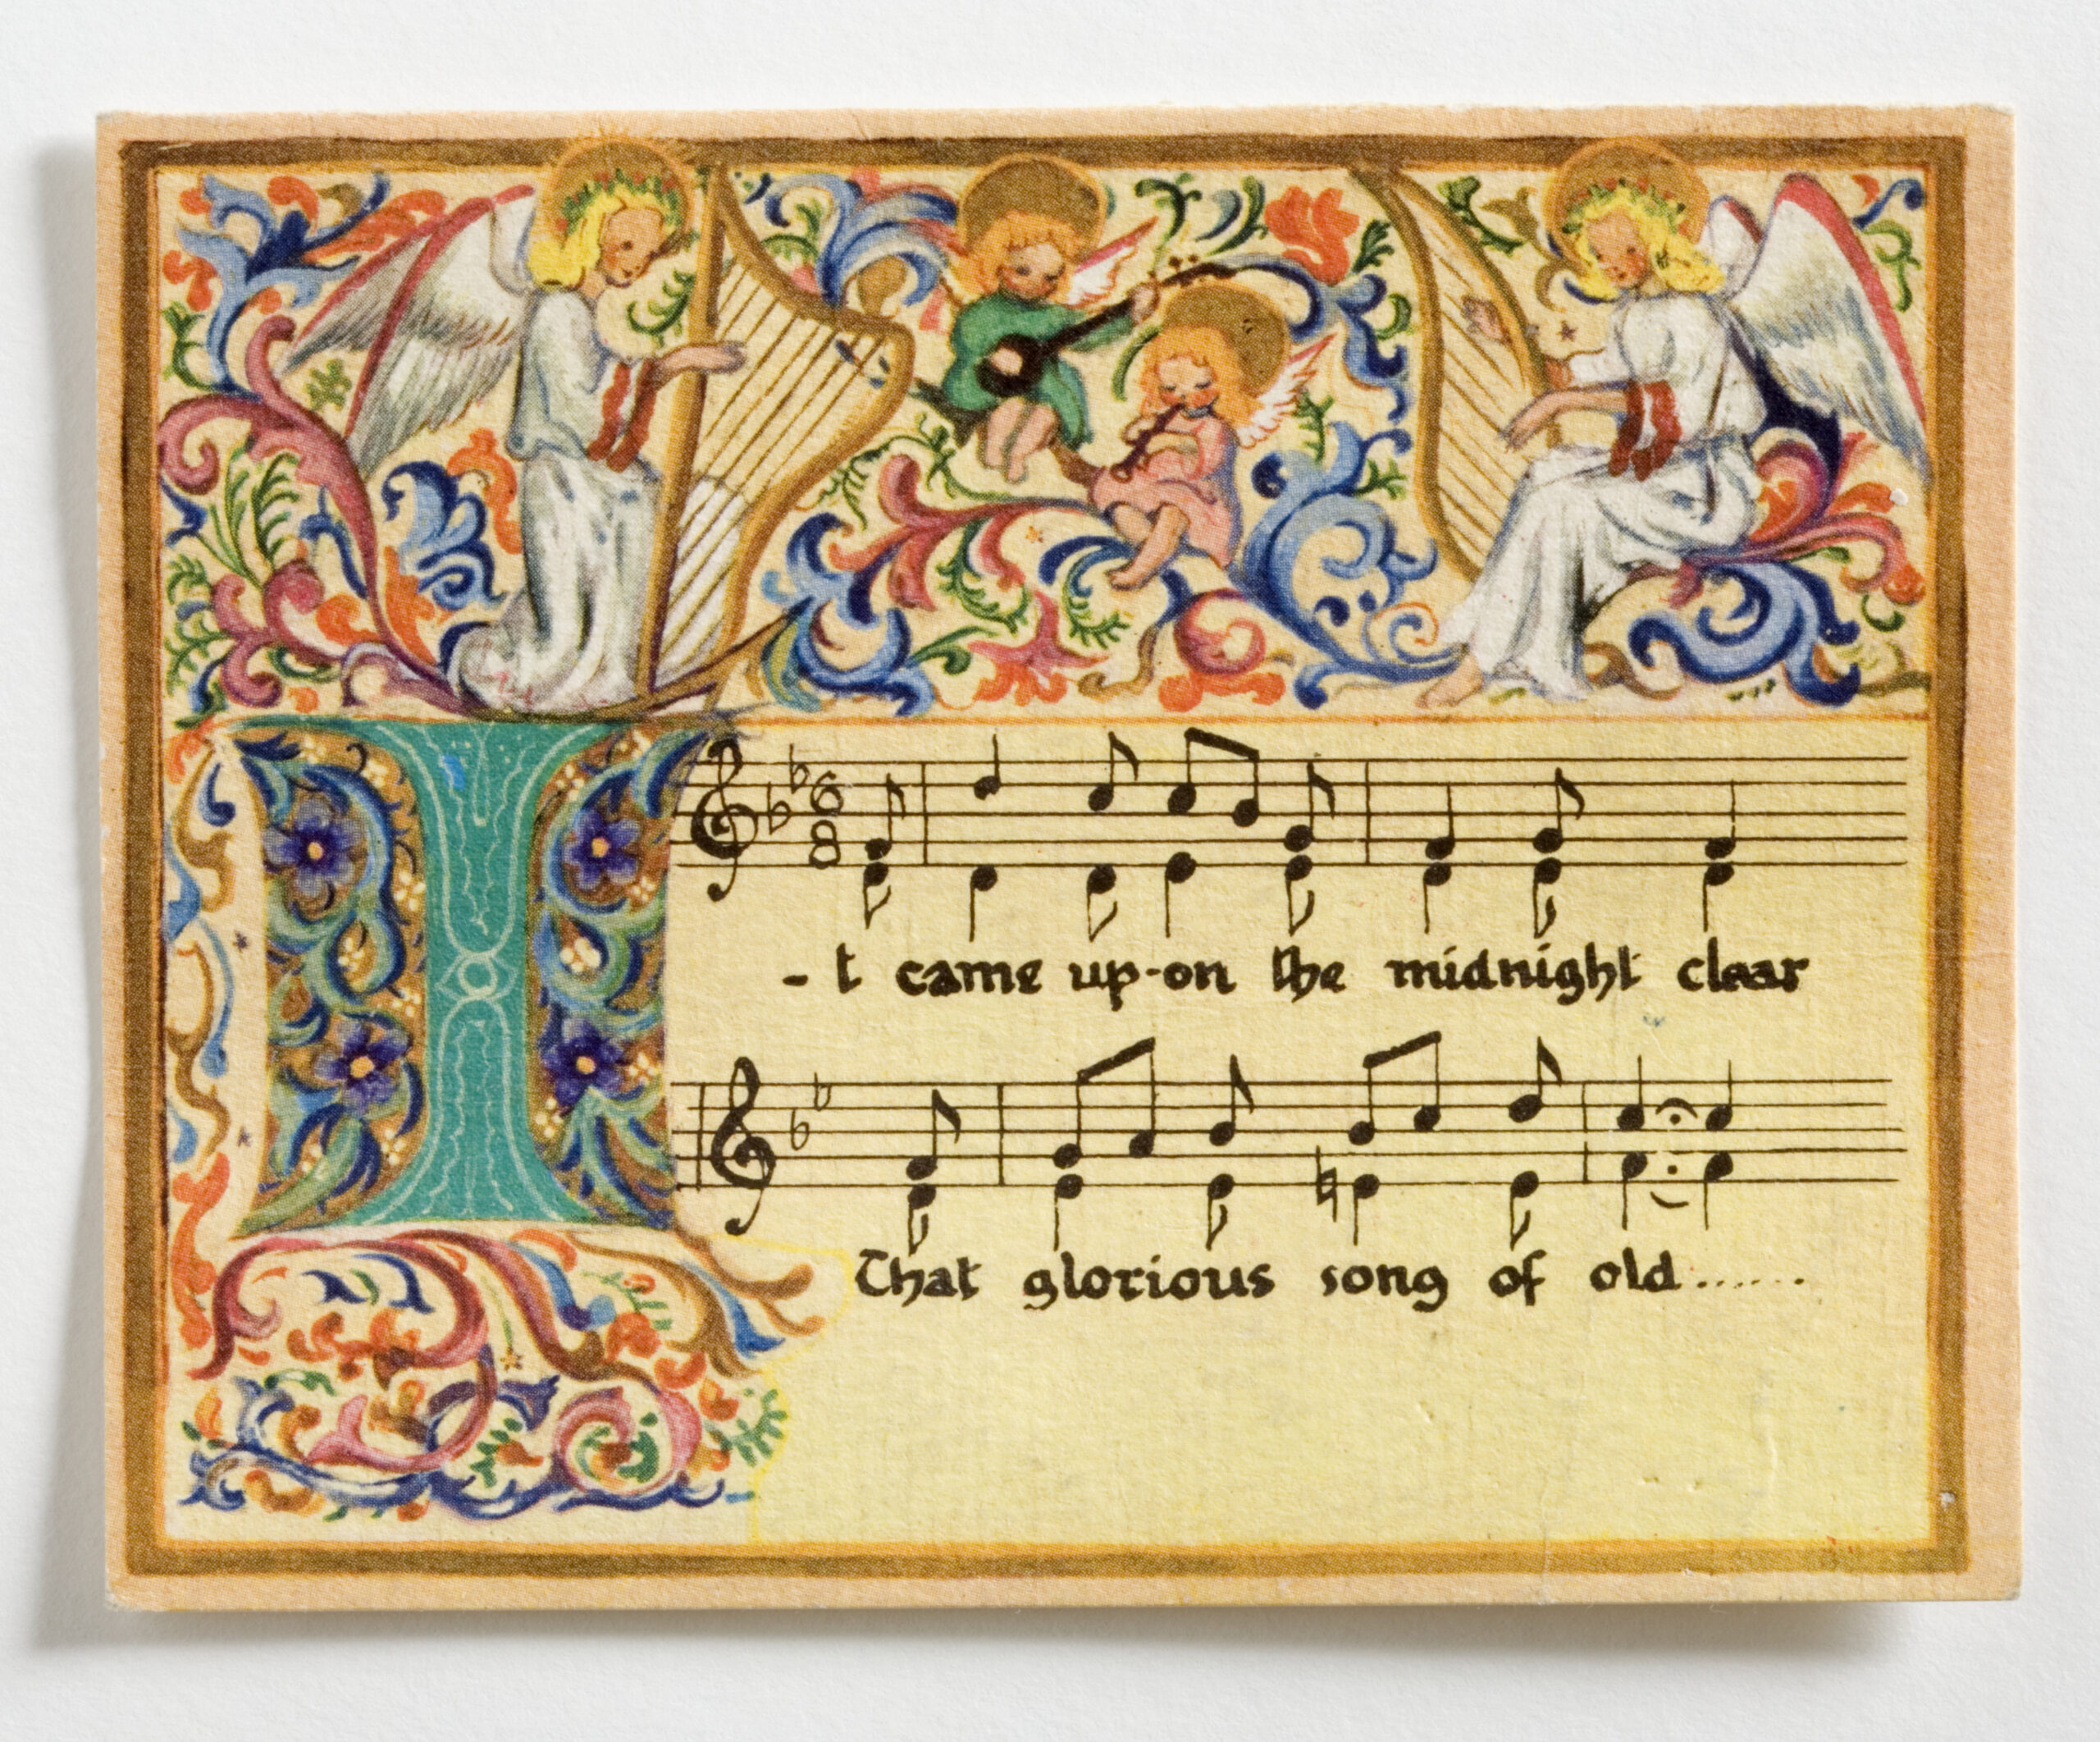 I-t came up-on the midnight clear
That glorious song of old......